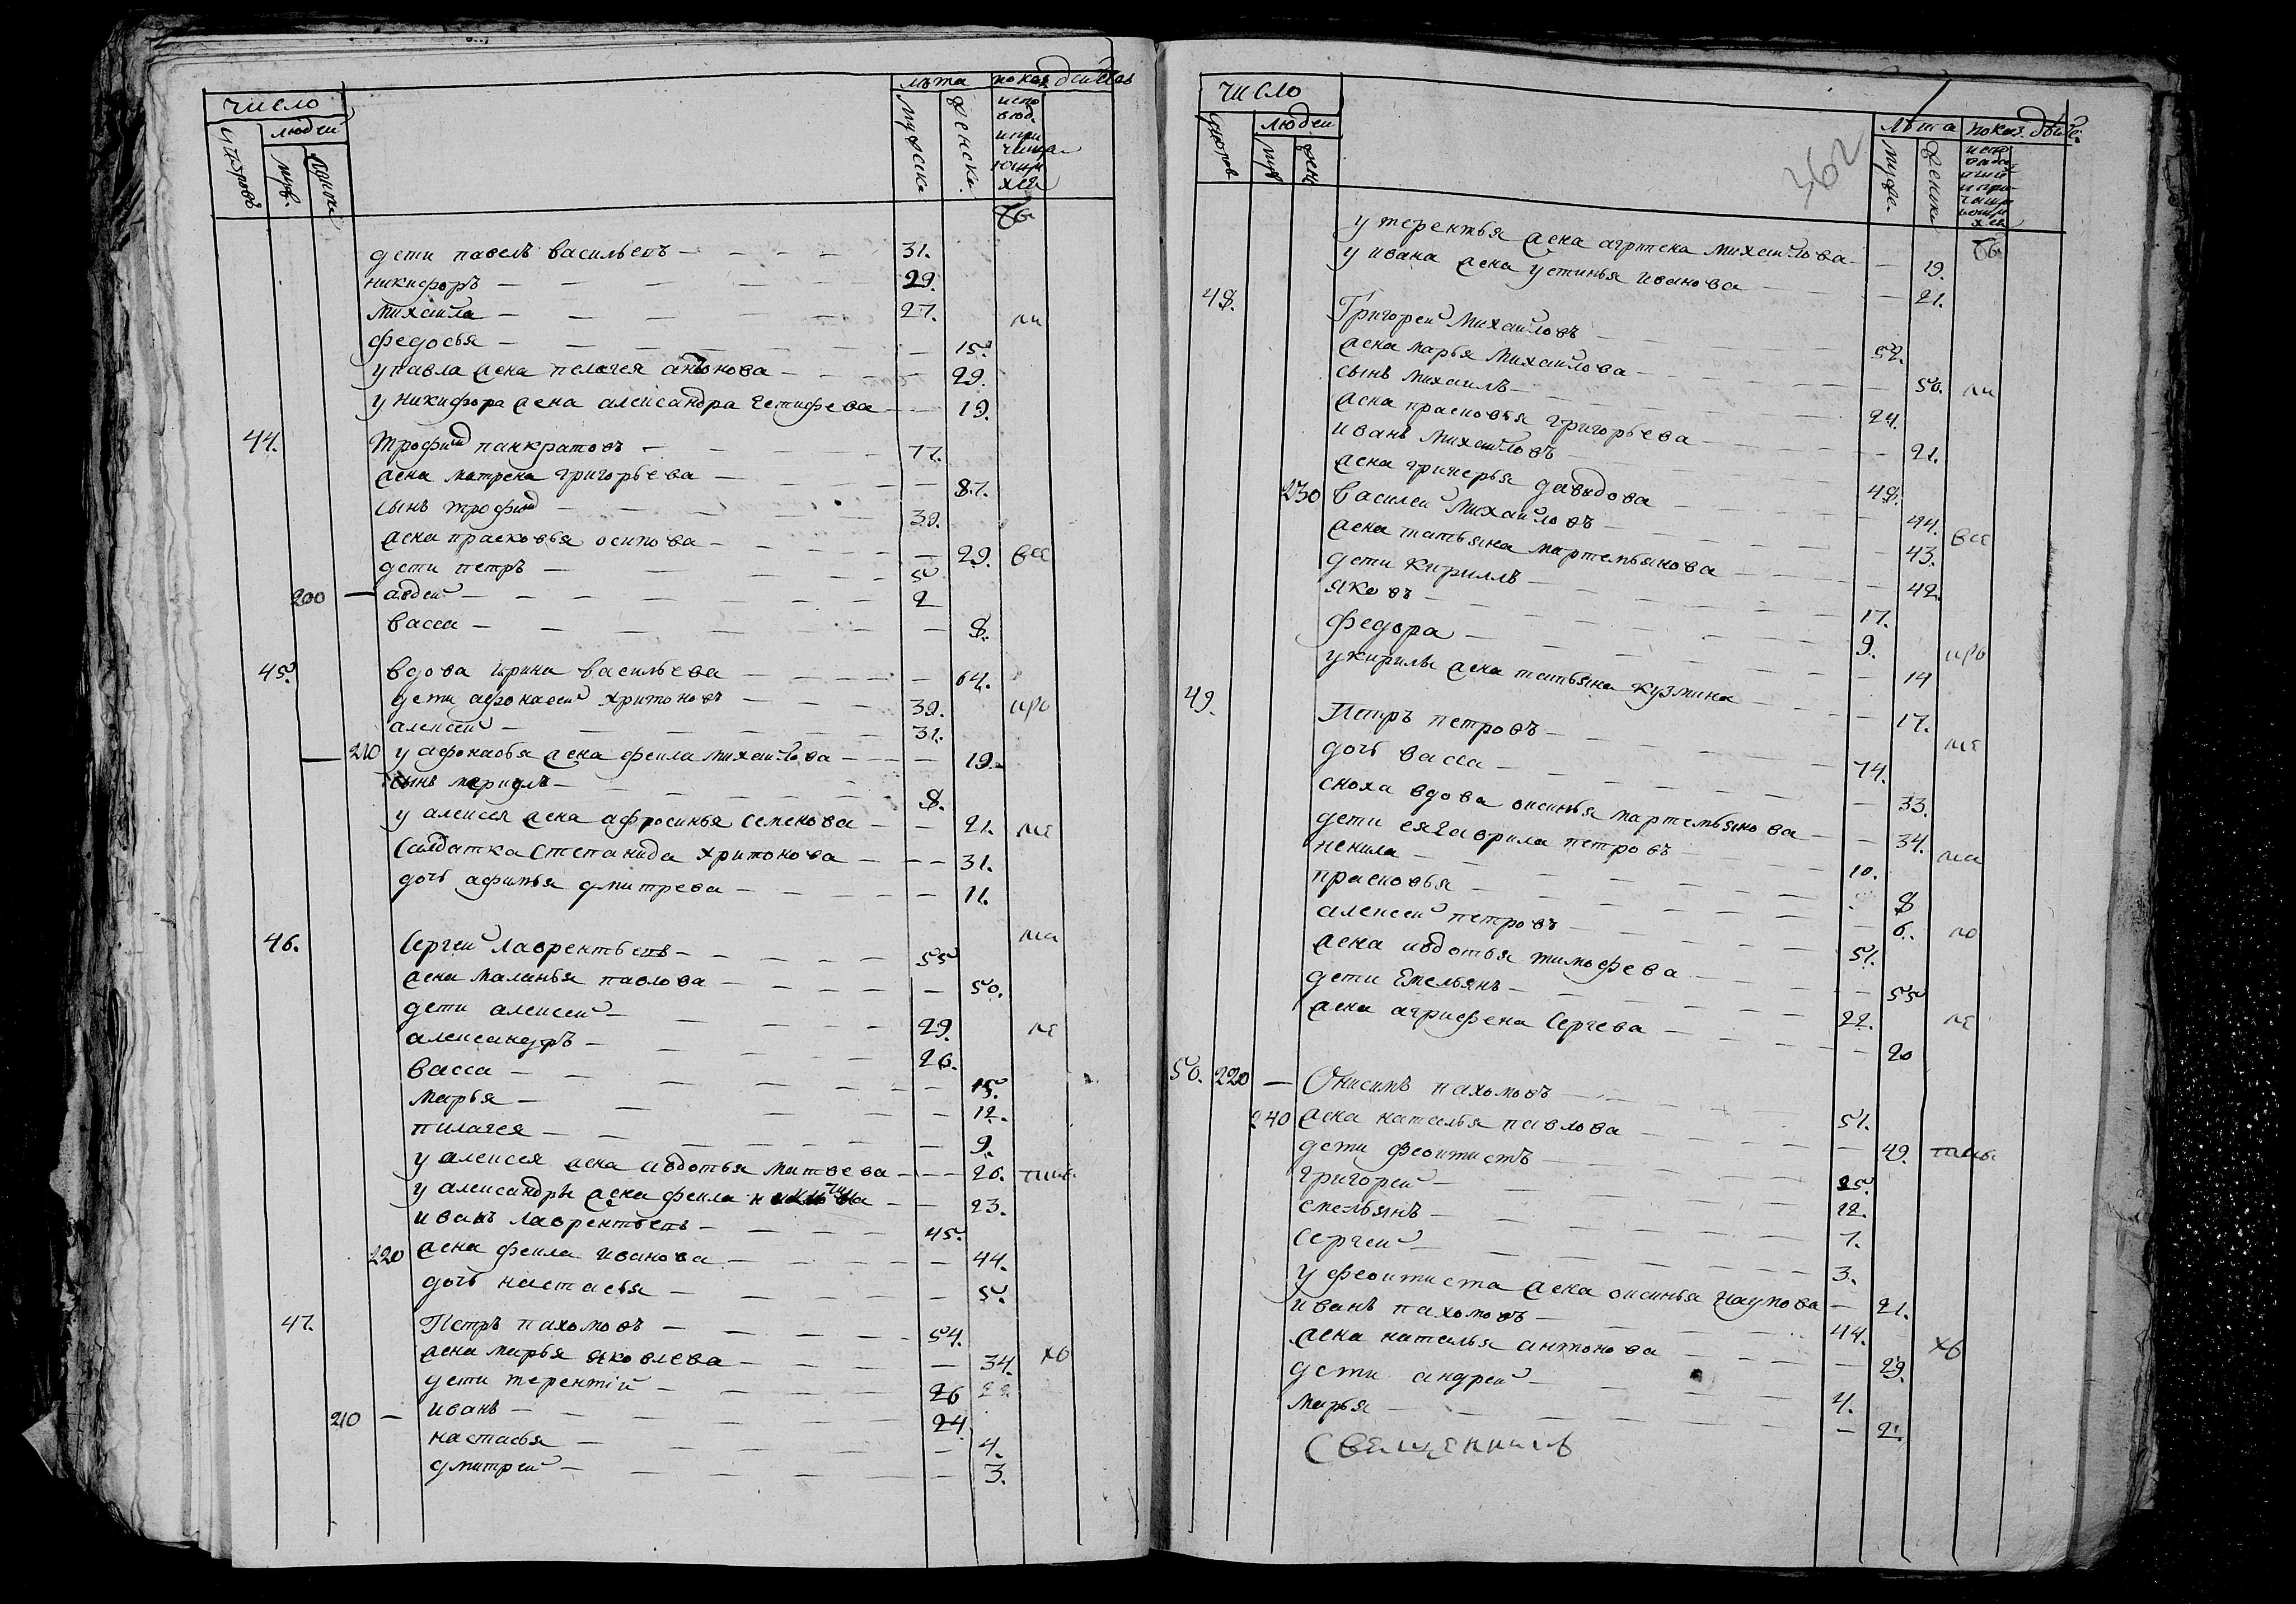 число
людей
дворовъ
муж.
женъ
лѣта
показ. действ
мужеска
женска
испо
вед.
и при
чища
ющи
хся
дети павелъ васильевъ — 31.
никифоръ — 29.
михаила — 27.
федосья — 15.
у павла жена пелагея антонова — 29.
у никифора жена александра — 19.
44. трофим панкратовъ — 77.
жена матрена григорьева — 87.
сынъ трофим — 39.
жена прасковья осипова — 29. все
дети петръ — 5
200 — авдей — 2
васса — 8.
45. вдова ирина васильева — 64.
дети афонасей хритоновъ — 39.
алексей — 31.
210 у афонасья жена фекла михаилова — 19.
сынъ — 8.
у алексея жена афросинья семенова — 21. же
салдатка степанида хритонова — 31.
дочь афимья дмитрева — 11.
46. Сергей лаврентьевъ — 55
жена маланья павлова — 50.
дети алексей — 29.
александръ — 26.
васса — 15.
марья — 12.
пилагея — 9.
у алексея жена авдотья матвева — 26.
у александры жена фекла — 23.
иванъ лаврентьевъ — 45.
220 жена фекла иванова — 44.
дочь настасья — 5.
47. Петръ пахомовъ — 54.
жена марья яковлева — 34.
дети терентій — 26
210 — иванъ — 24
настасья — 4.
дмитрей — 3.
362
число
людей
дворовъ
муж
жен
лѣта
показ. дѣйс:
мужс.
женск
испо
веда
и при
чаща
ющи
хся
у терентья жена агрипена михаилова — 19.
у ивана жена устинья иванова — 21.
48. Григорей михаиловъ — 52.
жена марья михаилова — 50.
сынъ михаилъ — 24.
жена прасковья григорьева — 21.
иванъ михаиловъ — 48.
жена давидова — 44.
230 василей михаиловъ — 43. все
жена татьяна мартемьянова — 42.
дети кириллъ — 17.
яковъ — 9.
федора — 14
у кирилы жена татьяна кузмина — 17.
49. Петръ петровъ — 74.
дочь васса — 33.
сноха вдова оксинья мартемьянова — 34.
дети ея гаврила петровъ — 10.
ненила — 8
прасковья — 6.
алексей петровъ — 51.
жена авдотья тимофева — 55
дети емельянъ — 22.
жена агрифена Сергева — 20
50. 220 — Онисимъ пахомовъ — 51.
240 жена наталья павлова — 49.
дети феоктистъ — 25.
григорей — 12.
емельянъ — 7.
Сергей — 3.
у феоктиста жена оксинья наумова — 21.
иванъ пахомовъ — 44.
жена наталья антонова — 29.
дети андрей — 4.
марья — 2.
Священникъ